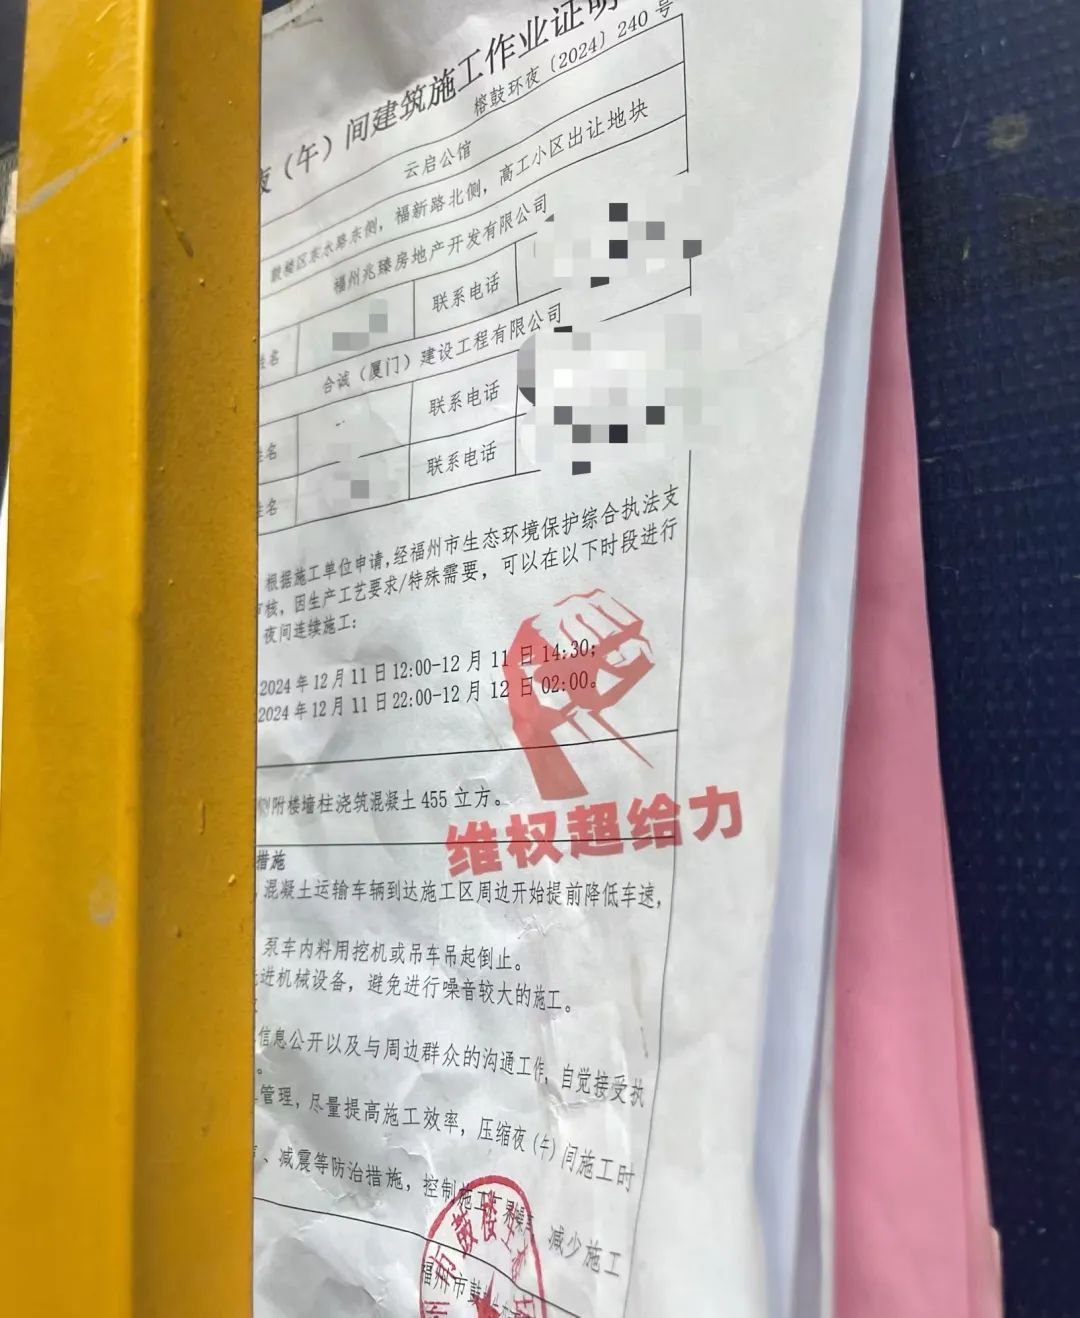 （午）间建筑施工作业证明
榕鼓环夜〔2024〕240号
云启公馆
鼓楼区东水路东侧，福新路北侧，高工小区出让地块
福州兆臻房地产开发有限公司
姓名 联系电话
合诚（厦门）建设工程有限公司
姓名 联系电话
姓名 联系电话
根据施工单位申请,经福州市生态环境保护综合执法支
审核，因生产工艺要求/特殊需要，可以在以下时段进行
夜间连续施工：
2024年12月11日12:00-12月11日14:30；
2024年12月11日22:00-12月12日02:00。
侧附楼墙柱浇筑混凝土455立方。
维权超给力
措施
混凝土运输车辆到达施工区周边开始提前降低车速，
泵车内料用挖机或吊车吊起倒止。
进机械设备，避免进行噪音较大的施工。
信息公开以及与周边群众的沟通工作，自觉接受执
管理，尽量提高施工效率，压缩夜（午）间施工时
、减震等防治措施，控制施工 减少施工
福州市鼓
鼓楼